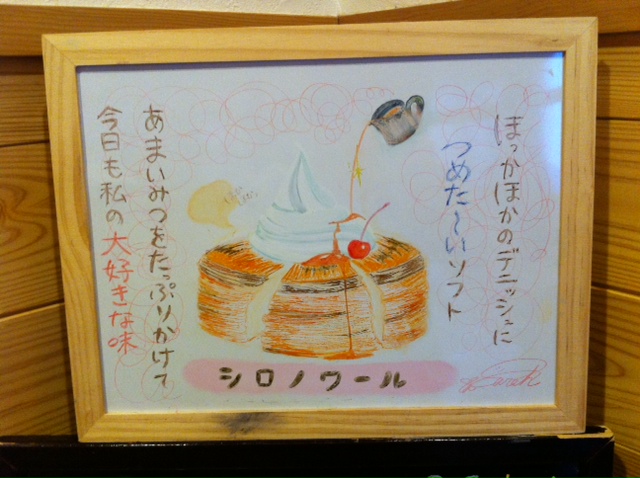 ほっかほかのデニッシュに
つめた〜いソフト
あまいみつをたっぷりかけて
今日も私の大好きな味
シロノワール